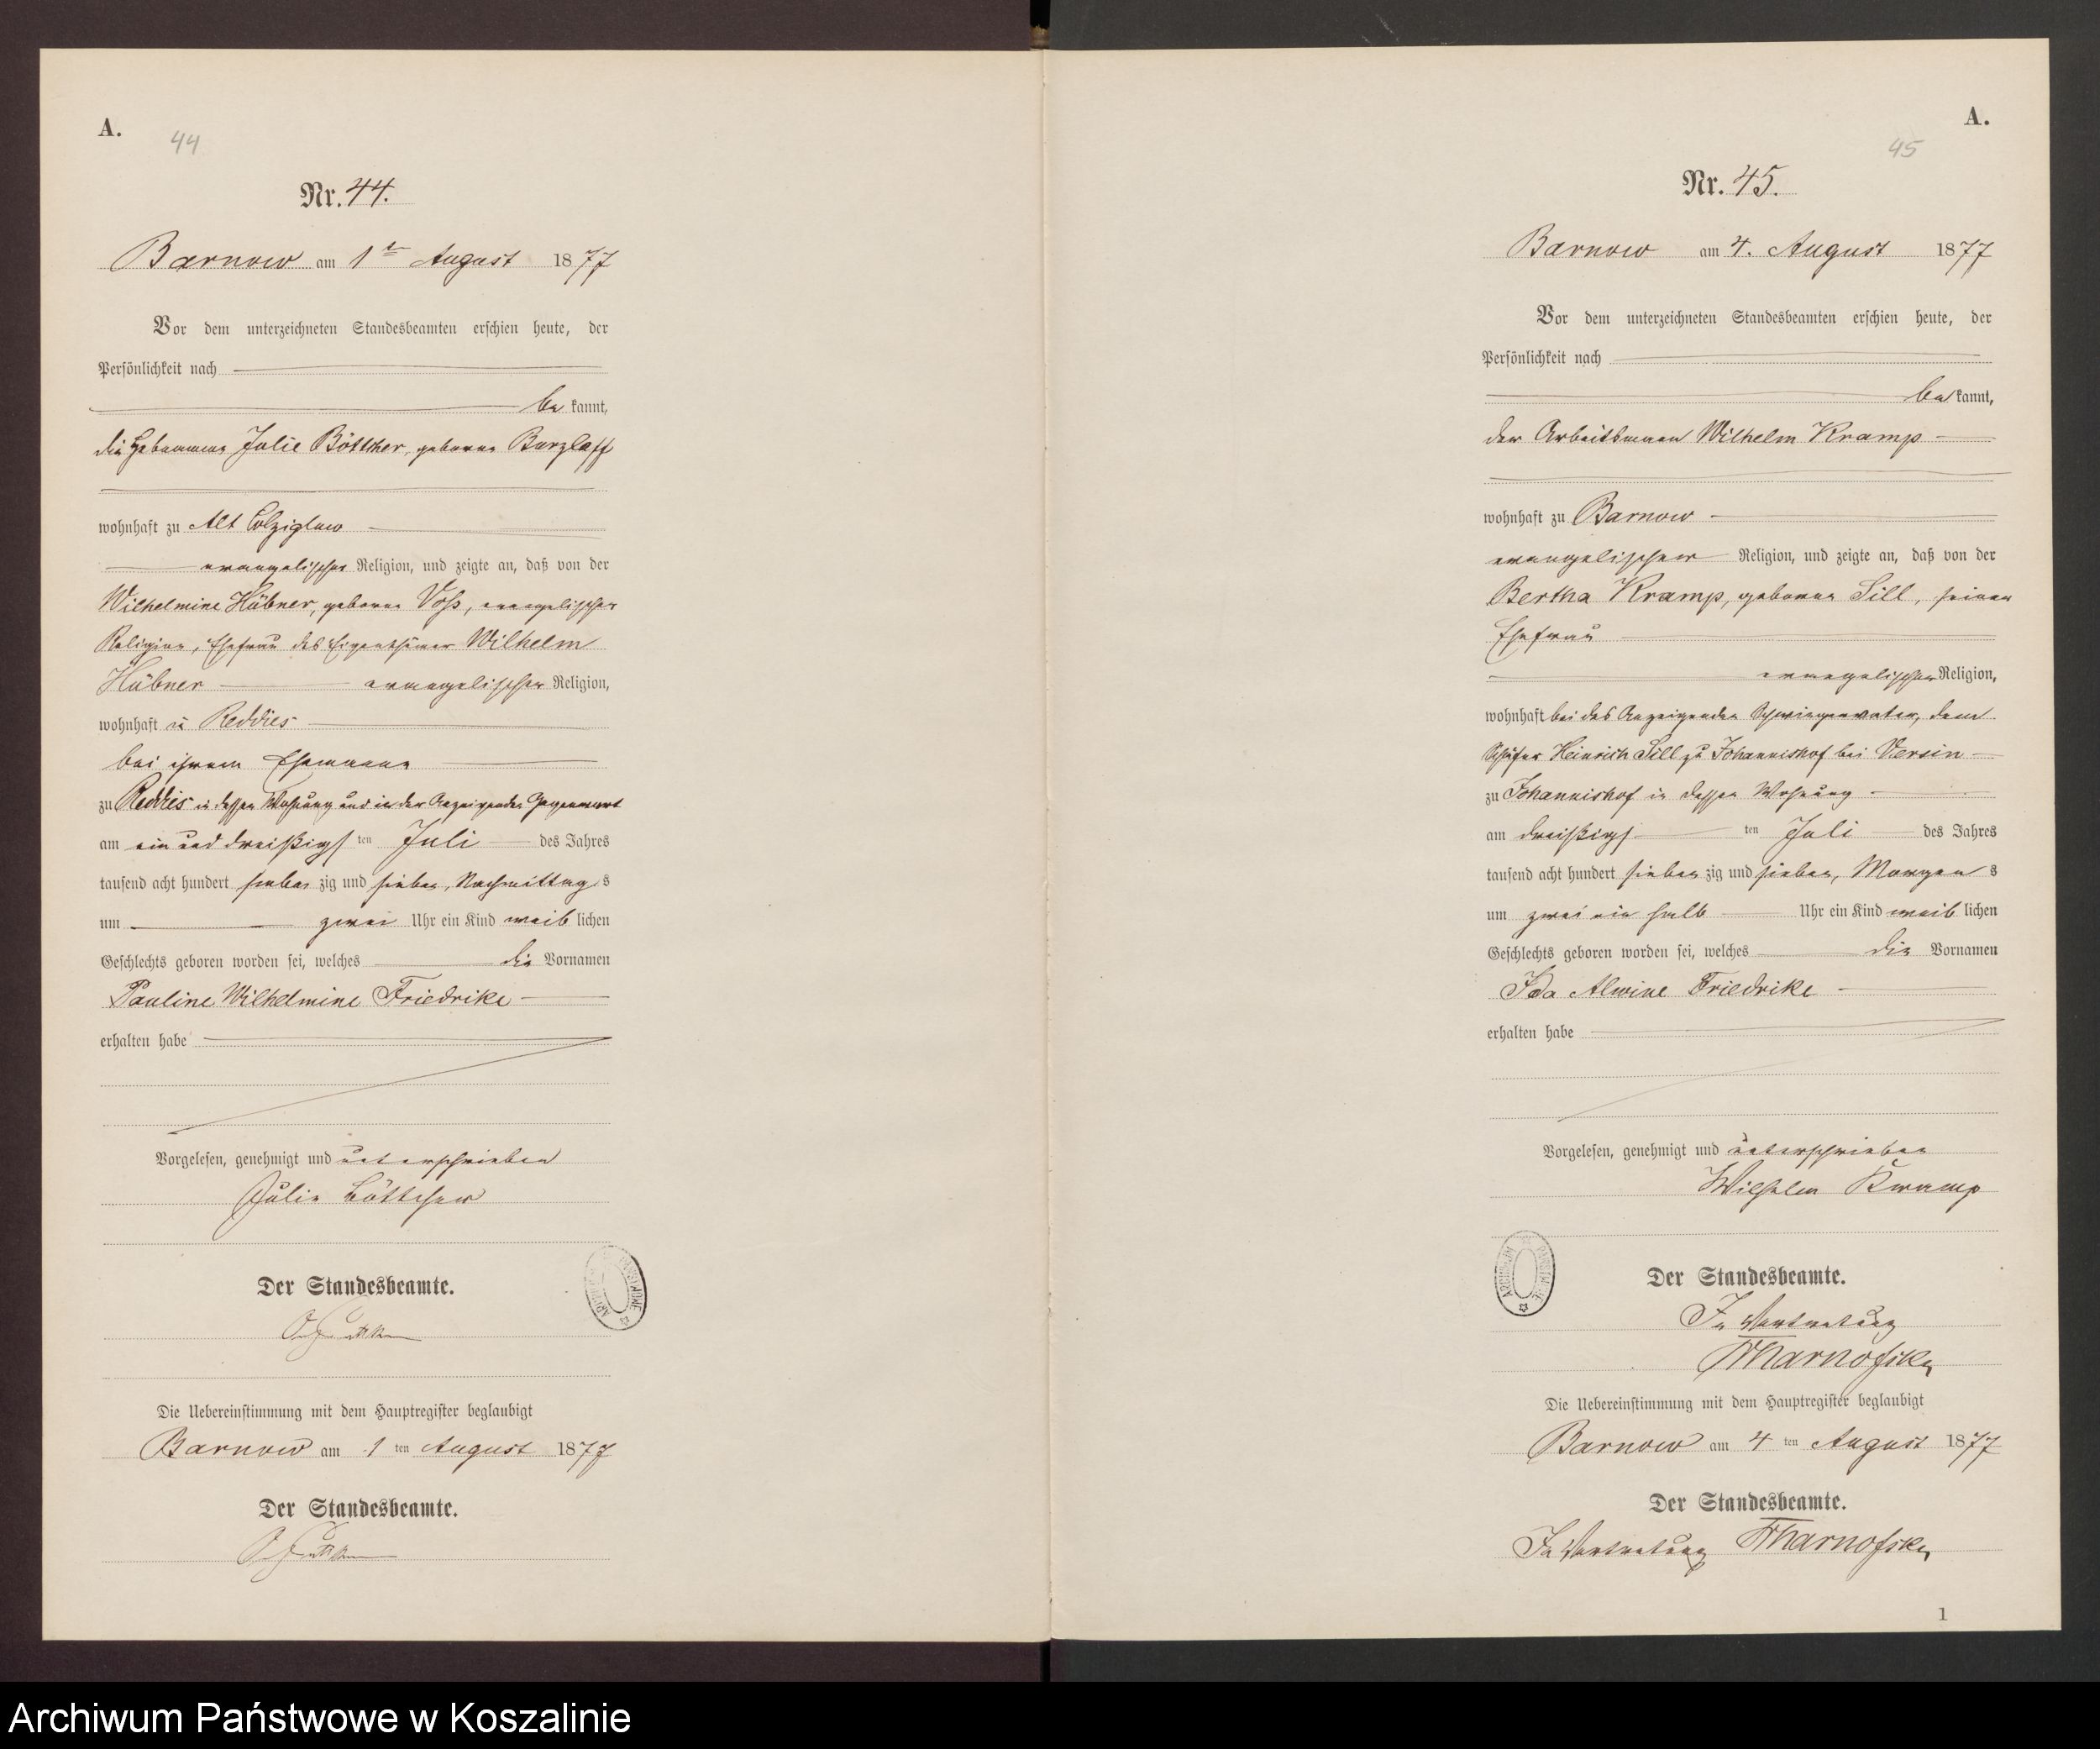 A.
44
Nr. 44.
Barnow am 1ten August 1877
Vor dem unterzeichneten Standesbeamten erschien heute, der
Persönlichkeit nach
be kannt,
die Hebamme Julie Böttcher, geborene Burzlaff
wohnhaft zu Alt Colziglow
evangelischer Religion, und zeigte an, daß von der
Wilhelmine Hübner, geborene Voß, evangelischer
Religion, Ehefrau des Eigenthümer Wilhelm
Hübner evangelischer Religion,
wohnhaft zu Reddies
bei ihrem Ehemanne
zu Reddies in dessen Wohnung und in der Anzeigenden Gegenwart
am ein und dreißigs ten Juli des Jahres
tausend acht hundert sieben zig und sieben, Nachmittag s
um zwei Uhr ein Kind weib lichen
Geschlechts geboren worden sei, welches die Vornamen
Pauline Wilhelmine Friedrike
erhalten habe
Vorgelesen, genehmigt und unterschrieben
Julie Böttcher
Der Standesbeamte.
Die Uebereinstimmung mit dem Hauptregister beglaubigt
Barnow am 1 ten August 1877
Der Standesbeamte.
A.
45
Nr. 45.
Barnow am 4. August 1877
Vor dem unterzeichneten Standesbeamten erschien heute, der
Persönlichkeit nach
be kannt,
der Arbeitsmann Wilhelm Kramp
wohnhaft zu Barnow
evangelischer Religion, und zeigte an, daß von der
Bertha Kramp, geborene Sill, seiner
Ehefrau
evangelischer Religion,
wohnhaft bei des Anzeigenden Schwiegervater, dem
Schäfer Heinrich Sill zu Johannishof bei Versin
zu Johannishof in dessen Wohnung
am dreißigs ten Juli des Jahres
tausend acht hundert sieben zig und sieben, Morgen s
um zwei ein halb Uhr ein Kind weib lichen
Geschlechts geboren worden sei, welches die Vornamen
Ida Alwine Friedrike
erhalten habe
Vorgelesen, genehmigt und unterschrieben
Wilhelm Kramp
Der Standesbeamte.
In Vertretung
Die Uebereinstimmung mit dem Hauptregister beglaubigt
Barnow am 4 ten August 1877
Der Standesbeamte.
In Vertretung
1
Archiwum Państwowe w Koszalinie